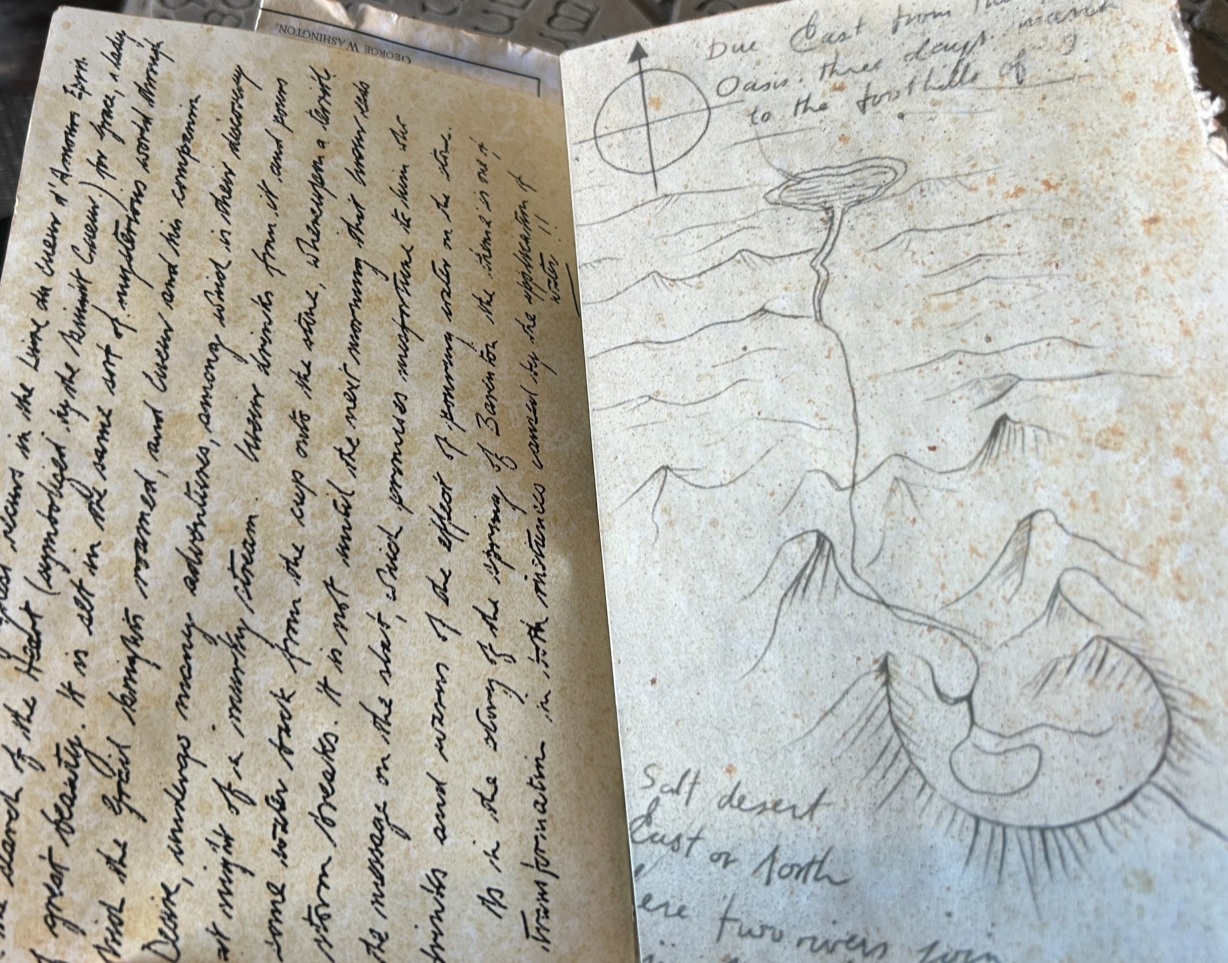 GEORGE WASHINGTON.
recurs in the Livre du Cuers d'Amours Epris.
search of the Heart (symbolised by the Knight Cuers) for Grace, a lady
of great beauty. It is set in the same sort of mysterious world through
which the Grail knights roamed, and Cuers and his companion
Desire, undergo many adventures, among which is their discovery
at night of a murky stream. Cuers drinks from it and pours
some water back from the cup onto the stone, whereupon a terrible
storm breaks. It is not until the next morning that he sees
the message on the slab, which promises misfortune to him who
drinks and warns of the effect of pouring water on the stone.
As in the story of the spring of Barenton the theme is one of
transformation in both instances caused by the application of
water!!
Due East from the
Oasis. three days march
to the foothills of ?
Salt desert
East or North
ere two rivers join